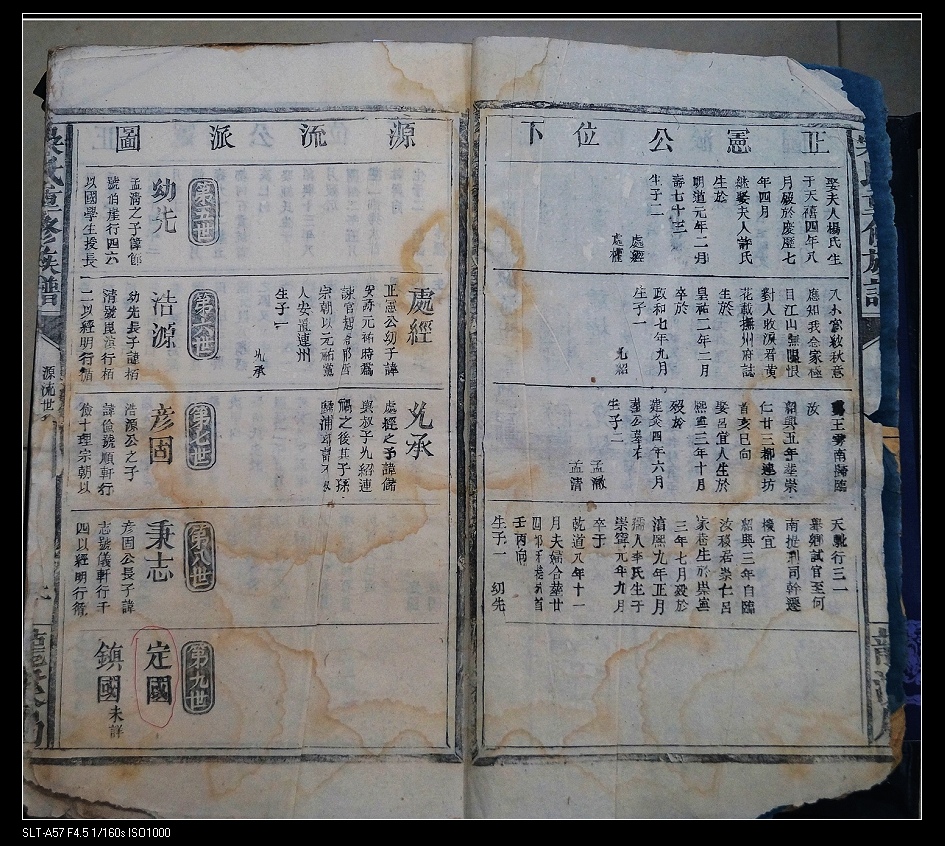 吳氏重修族譜
正憲公位下
娶夫人楊氏生
于天禧四年八
月殁於慶歷七
年四月
繼娶夫人許氏
生於
明道元年二月
壽七十三
生子二
處經
處權
秋意
應知我念家極
目江山無限恨
對人收淚看黄
花載撫州府誌
生於
皇祐二年二月
卒於
政和七年九月
生子一
允紹
王雩南歸臨
汝
紹興五年葬崇
仁廿三都連坊
首亥巳向
娶呂宜人生於
熙寧三年十月
殁於
建炎四年六月
葬公墓右
生子二
孟澈
孟清
行三一
舉鄉試官至何
南提刑司幹遷
機宜
紹興三年自臨
汝移居崇仁呂
家巷生於崇寧
三年七月殁於
淳熙九年正月
孺人李氏生于
崇寧元年九月
卒于
乾道八年十一
月夫婦合葬廿
四都
壬丙向
生子一 幼先
源流派圖
處經
正憲公幼子諱
安詩元祐時爲
諫官
宗朝以元祐黨
人安置連州
生子一
允承
允承
處經之子諱儲
與叔子允紹連
禍之後其子孫
第五世
幼先
孟清之子諱節
號伯崖行四六
以國學生授長
第六世
浩源
幼先長子諱栢
清號崑崖行栢
二以經明行脩
第七世
彥固
浩源公之子
諱儉號順軒行
儉十理宗朝以
第八世
秉志
彥固公長子諱
志號儀軒行千
四以經明行脩
第九世
定國
鎮國 未詳
吳氏重修族譜
源流世
SLT-A57 F4.5 1/160s ISO1000